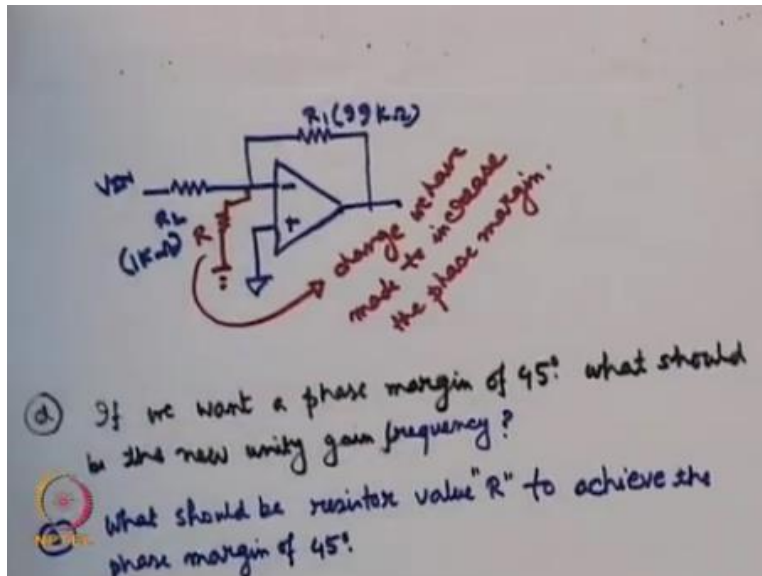 R1(99KΩ)
VIN
R2
(1KΩ)
R
-
+
change we have
made to increase
the phase margin.
(d) If we want a phase margin of 45°. what should
be the new unity gain frequency?
What should be resistor value "R" to achieve the
phase margin of 45°.
NPTEL